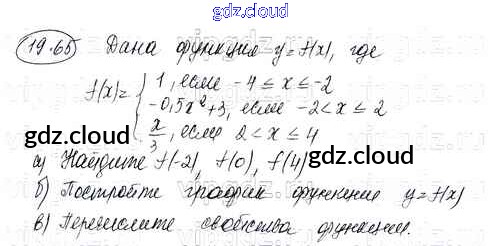 gdz.cloud
19.65 Дана функция y=f(x), где
f(x)= { 1, если -4 ≤ x ≤ -2
-0,5x²+3, если -2 < x ≤ 2
x/3, если 2 < x ≤ 4
gdz.cloud gdz.cloud
а) Найдите f(-2), f(0), f(4)
б) Постройте график функции y=f(x)
в) Перечислите свойства функции.
gdz.cloud